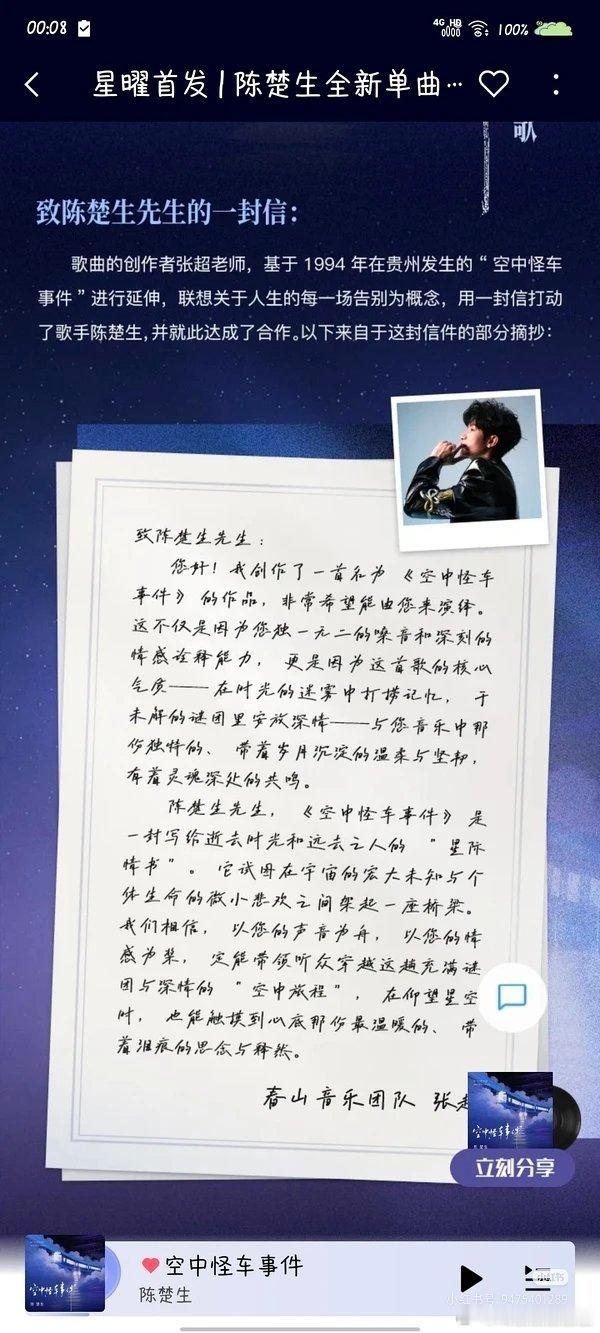 00:08
4G HD
100%
星曜首发 | 陈楚生全新单曲…
歌
致陈楚生先生的一封信：
歌曲的创作者张超老师，基于 1994 年在贵州发生的“ 空中怪车
事件 ” 进行延伸，联想关于人生的每一场告别为概念，用一封信打动
了歌手陈楚生,并就此达成了合作。以下来自于这封信件的部分摘抄：
致陈楚生先生：
您好！我创作了一首名为 《空中怪车
事件》 的作品，非常希望能由您来演绎。
这不仅是因为您独一无二的嗓音和深刻的
情感诠释能力， 更是因为这首歌的核心
气质——在时光的迷雾中打捞记忆， 于
未解的谜团里安放深情——与您音乐中那
份独特的、 带着岁月沉淀的温柔与坚韧，
有着灵魂深处的共鸣。
陈楚生先生， 《空中怪车事件》 是
一封写给逝去时光和远去之人的 “星际
情书”。 它试图在宇宙的宏大未知与个
体生命的微小悲欢之间架起一座桥梁。
我们相信， 以您的声音为舟， 以您的情
感为桨， 定能带领听众穿越这趟充满谜
团与深情的 “空中旅程”， 在仰望星空
时， 也能触摸到心底那份最温暖的、 带
着泪痕的思念与释然。
春山音乐团队 张超
空中怪车事件
陈楚生
立刻分享
空中怪车事件
陈楚生
空中怪车事件
陈楚生
小红书
小红书号: 9475401289